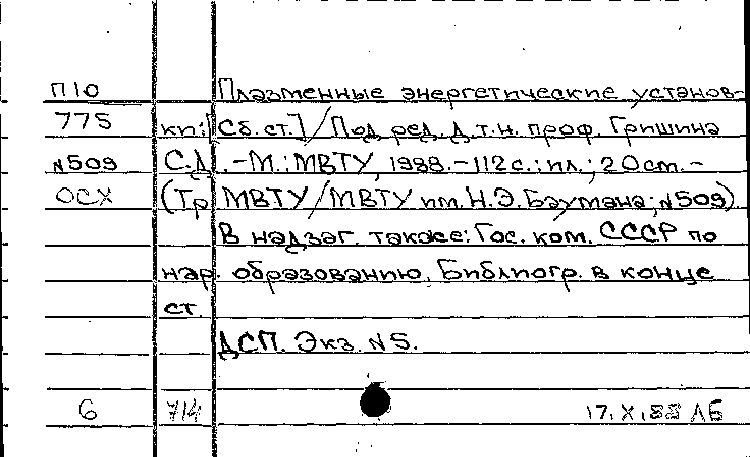 П10 Плазменные энергетические установ-
775 ки: [Сб. ст.] / Под ред. д.т.н. проф. Гришина
N509 С.Д. - М.: МВТУ, 1988. - 112 с.: ил.; 20 см. -
ОСХ (Тр МВТУ / МВТУ им. Н.Э. Баумана; N509)
В надзаг. также: Гос. ком. СССР по
нар. образованию. Библиогр. в конце
ст.
ДСП. Экз. N5.
6 714 17.X.88 ЛБ